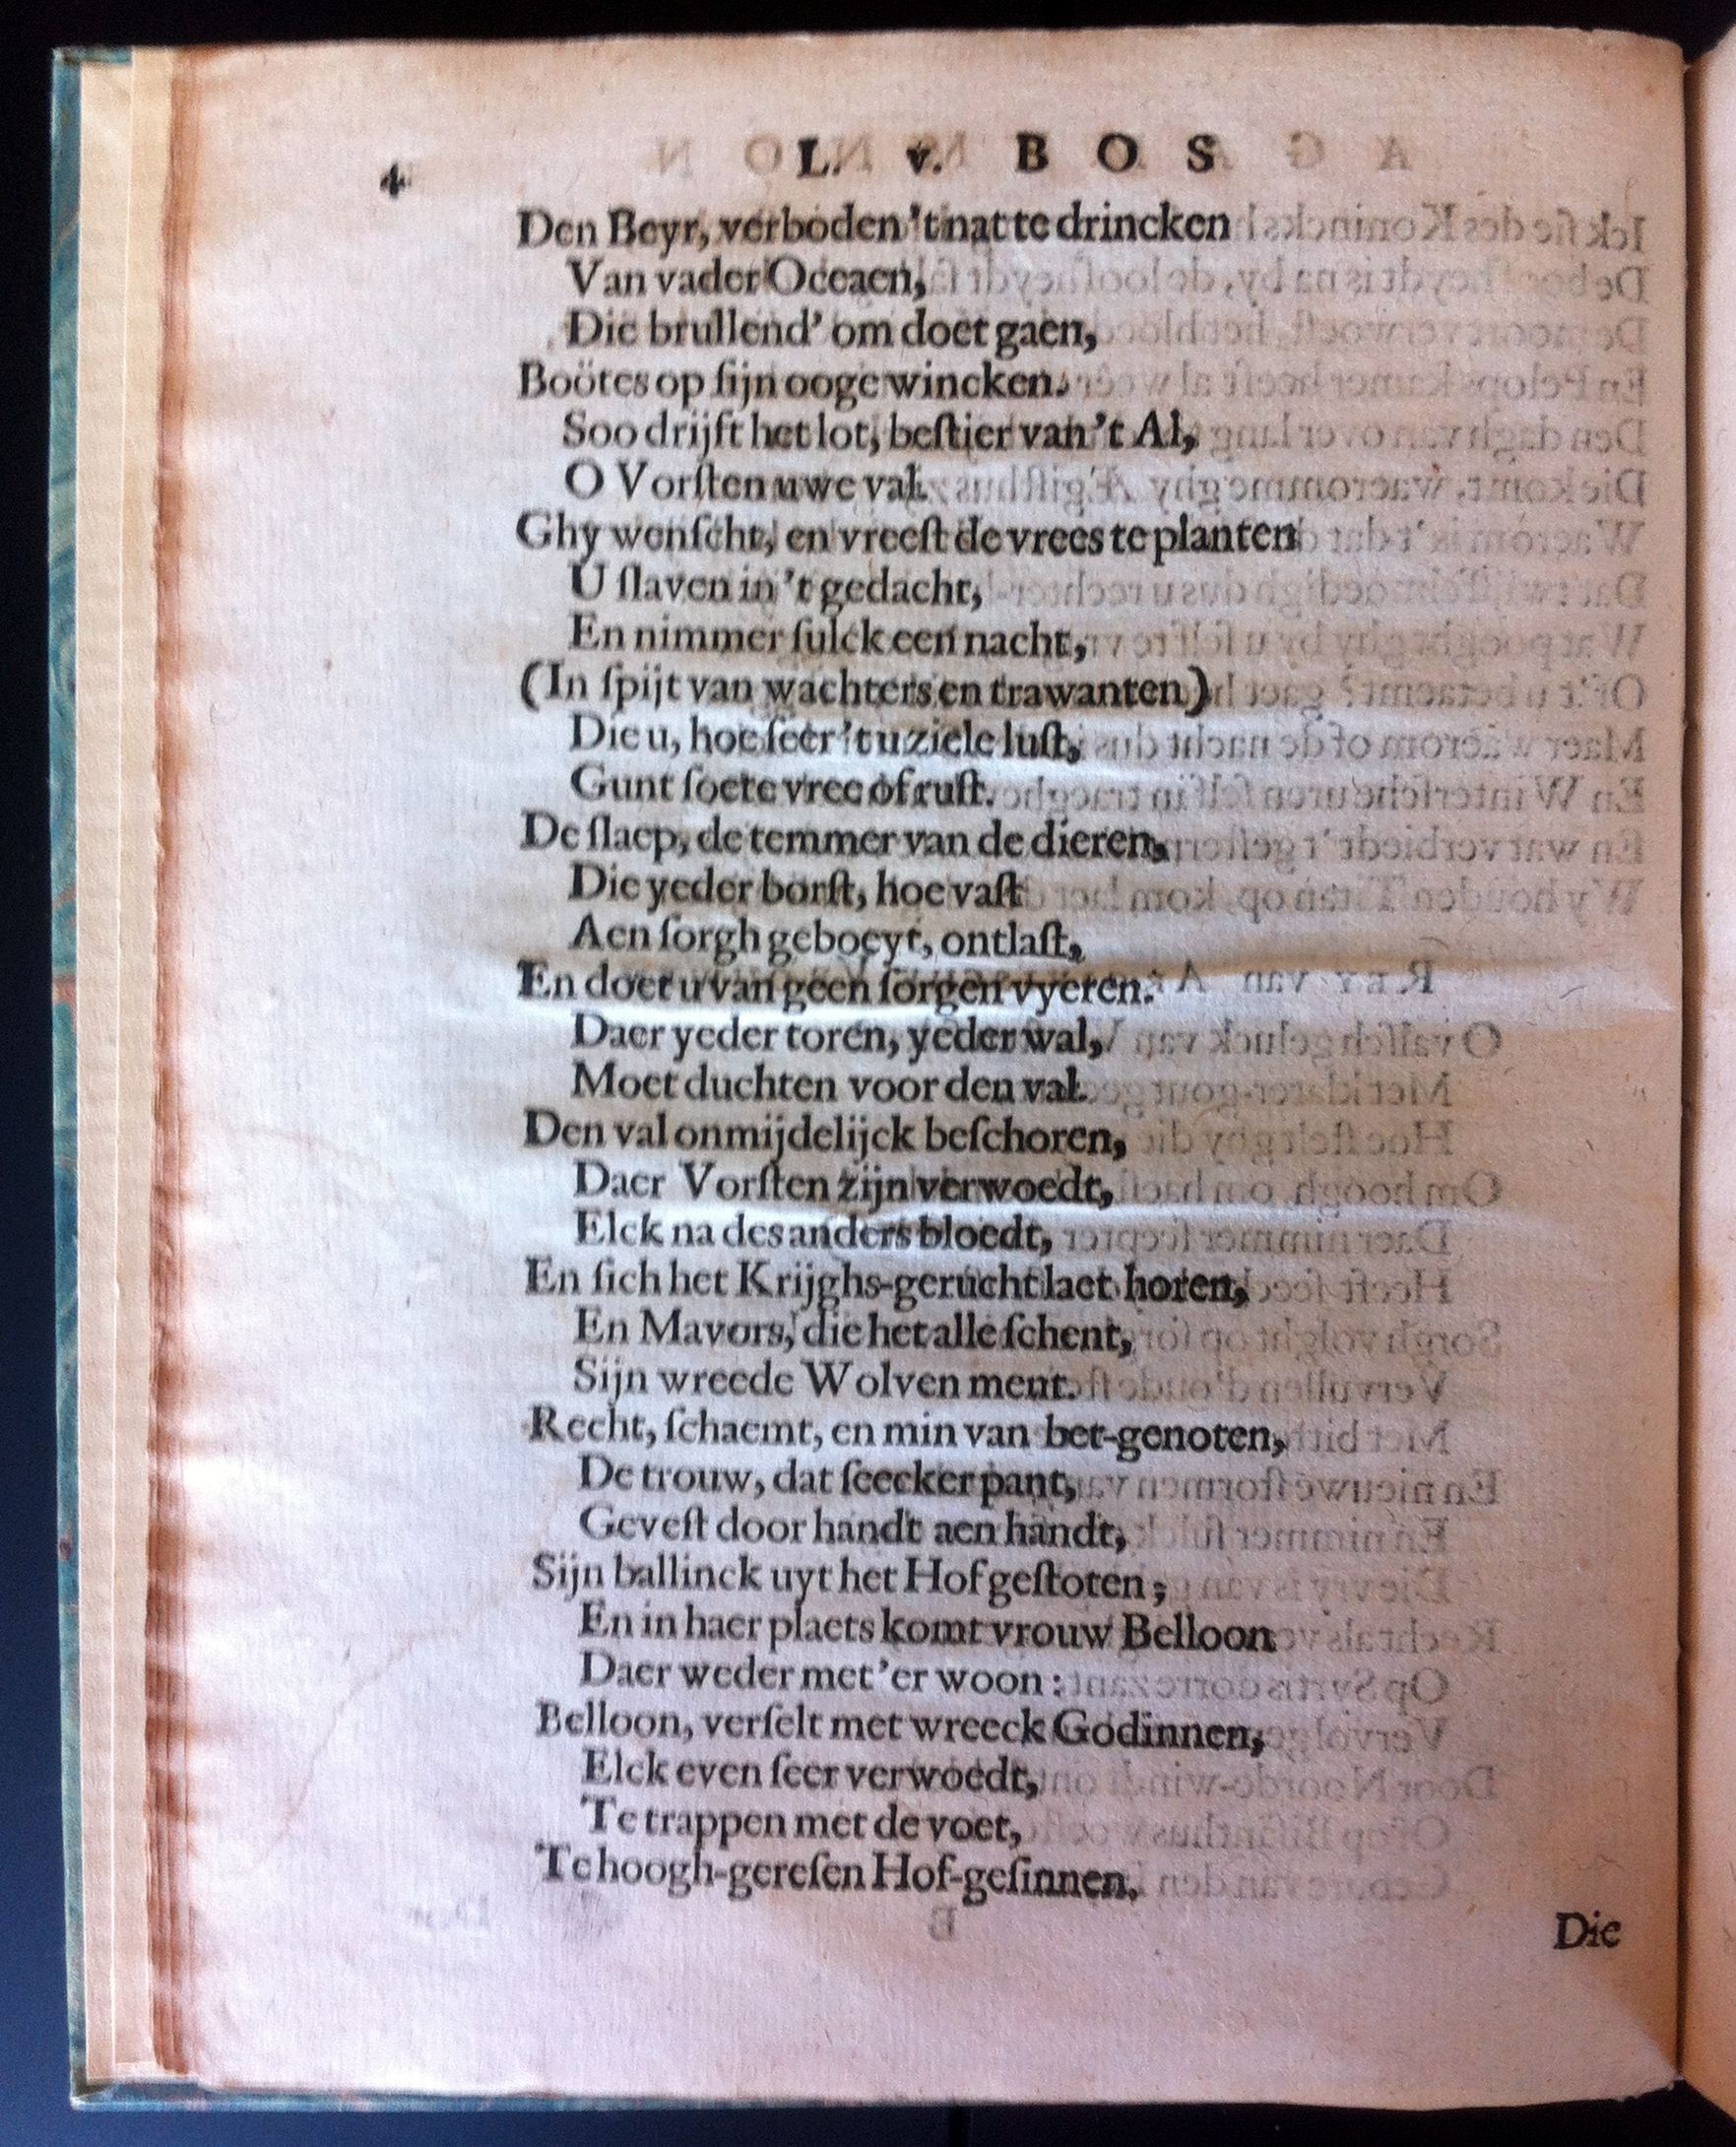 4 L. v. BOS
Den Beyr, verboden 't nat te drincken
Van vader Oceaen,
Die brullend' om doet gaen,
Boötes op ſijn ooge wincken.
Soo drijft het lot, beſtier van 't Al,
O Vorſten uwe val.
Ghy wenſcht, en vreeſt de vrees te planten
U ſlaven in 't gedacht,
En nimmer ſulck een nacht,
(In ſpijt van wachters en trawanten)
Die u, hoe ſeer 't u ziele luſt,
Gunt ſoete vree of ruſt.
De ſlaep, de temmer van de dieren,
Die yeder borſt, hoe vaſt
Aen ſorgh geboeyt, ontlaſt,
En doet u van geen ſorgen vyeren.
Daer yeder toren, yeder wal,
Moet duchten voor den val.
Den val onmijdelijck beſchoren,
Daer Vorſten zijn verwoedt,
Elck na des anders bloedt,
En ſich het Krijghs-gerucht laet horen,
En Mavors, die het alle ſchent,
Sijn wreede Wolven ment.
Recht, ſchaemt, en min van bet-genoten,
De trouw, dat ſeecker pant,
Geveſt door handt aen handt,
Sijn ballinck uyt het Hof geſtoten;
En in haer plaets komt vrouw Belloon
Daer weder met 'er woon:
Belloon, verſelt met wreeck Godinnen,
Elck even ſeer verwoedt,
Te trappen met de voet,
Te hoogh-gereſen Hof-geſinnen.
Die